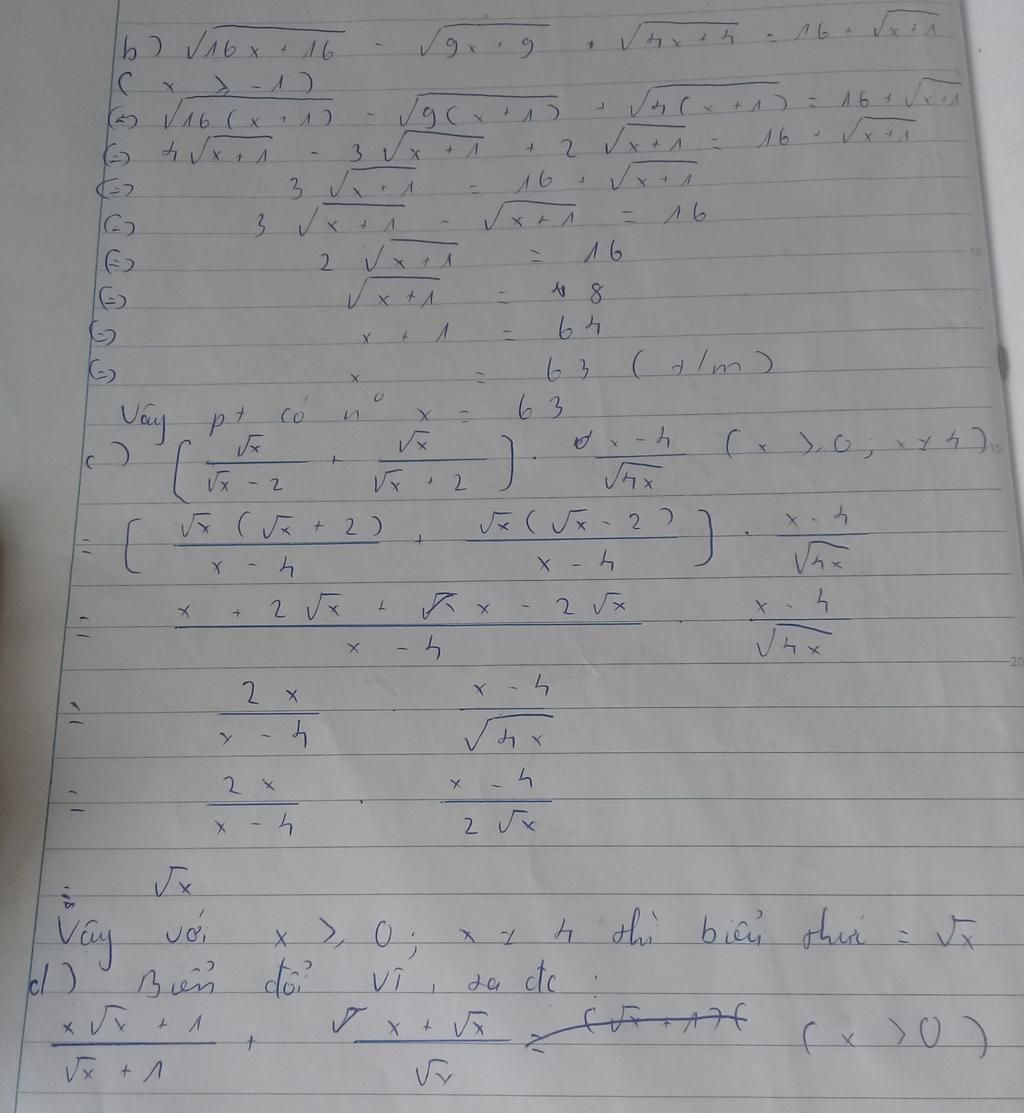 b) √(16x + 16) - √(9x + 9) + √(4x + 4) = 16 + √(x + 1)
(x ≥ -1)
(=) √(16(x + 1)) - √(9(x + 1)) + √(4(x + 1)) = 16 + √(x + 1)
(=) 4√(x + 1) - 3√(x + 1) + 2√(x + 1) = 16 + √(x + 1)
(=) 3√(x + 1) = 16 + √(x + 1)
(=) 3√(x + 1) - √(x + 1) = 16
(=) 2√(x + 1) = 16
(=) √(x + 1) = 8
(=) x + 1 = 64
(=) x = 63 (t/m)
Vậy pt có n° x = 63
c) [√x/(√x - 2) + √x/(√x + 2)] . (x - 4)/√(4x) (x ≥ 0; x ≠ 4)
= [√x(√x + 2)/(x - 4) + √x(√x - 2)/(x - 4)] . (x - 4)/√(4x)
= (x + 2√x + x - 2√x)/(x - 4) . (x - 4)/√(4x)
= 2x/(x - 4) . (x - 4)/√(4x)
= 2x/(x - 4) . (x - 4)/(2√x)
= √x
Vậy với x ≥ 0; x ≠ 4 thì biểu thức = √x
d) Biến đổi VT, ta đc :
(x√x + 1)/(√x + 1) + (x + √x)/√x = (√x + 1)( (x > 0)